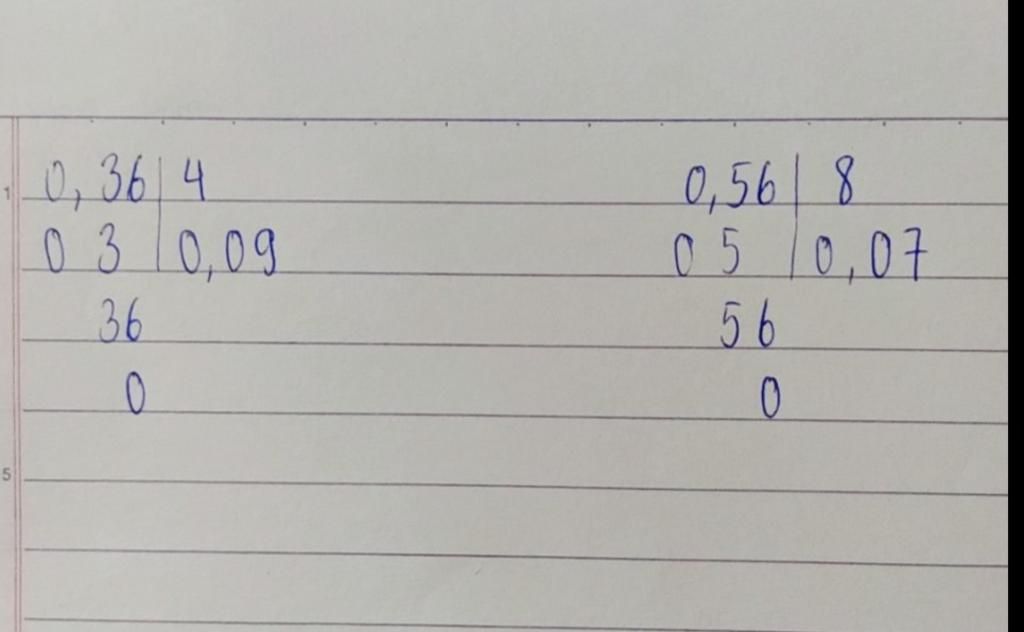 1
0,36 | 4
0 3 | 0,09
36
0
0,56 | 8
0 5 | 0,07
56
0
5